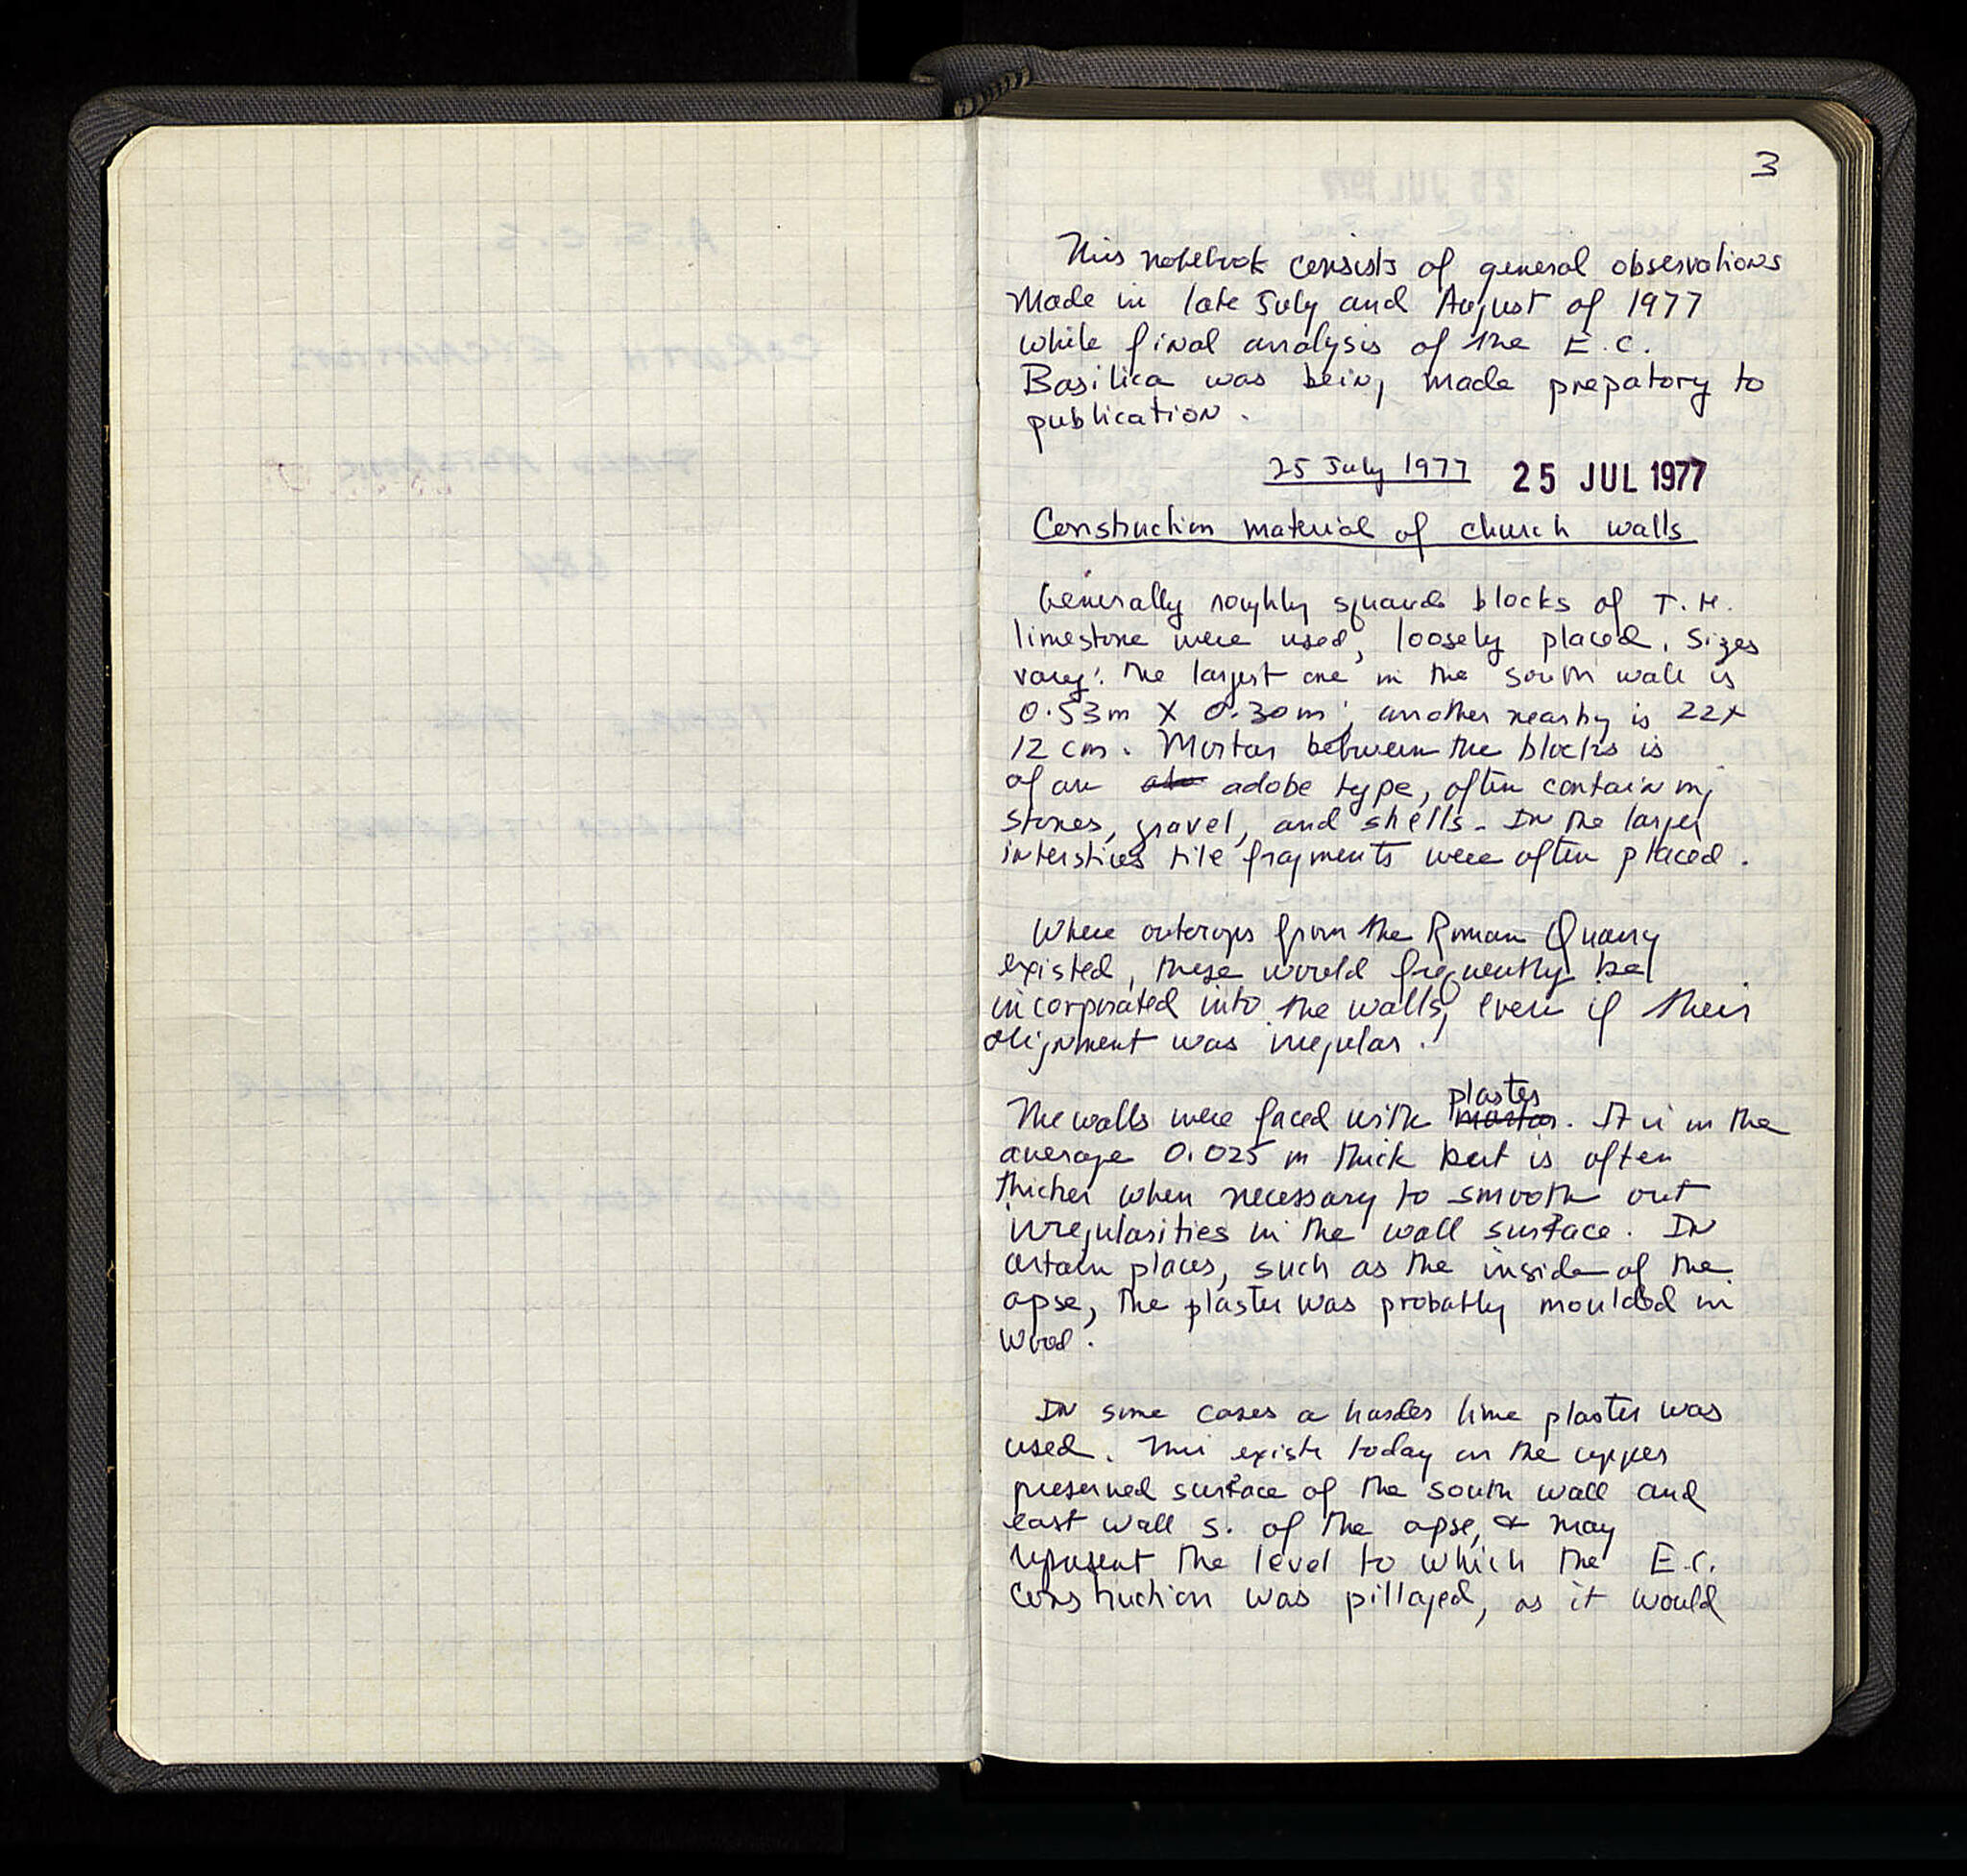 3
This notebook consists of general observations
made in late July and August of 1977
while final analysis of the E.C.
Basilica was being made prepatory to
publication.
25 July 1977 25 JUL 1977
Construction material of church walls
Generally roughly squared blocks of T.H.
limestone were used, loosely placed. Sizes
vary: the largest one in the south wall is
0.53m X 0.30m; another nearby is 22x
12 cm. Mortar between the blocks is
of an adobe type, often containing
stones, gravel, and shells. In the larger
interstices tile fragments were often placed.
Where outcrops from the Roman Quarry
existed, these would frequently be
incorporated into the walls, even if their
alignment was irregular.
plaster
The walls were faced with mortar. It is in the
average 0.025 m thick but is often
thicker when necessary to smooth out
irregularities in the wall surface. In
certain places, such as the inside of the
apse, the plaster was probably moulded in
wood.
In some cases a harder lime plaster was
used. This exists today on the upper
preserved surface of the south wall and
east wall S. of the apse, & may
represent the level to which the E.C.
construction was pillaged, as it would